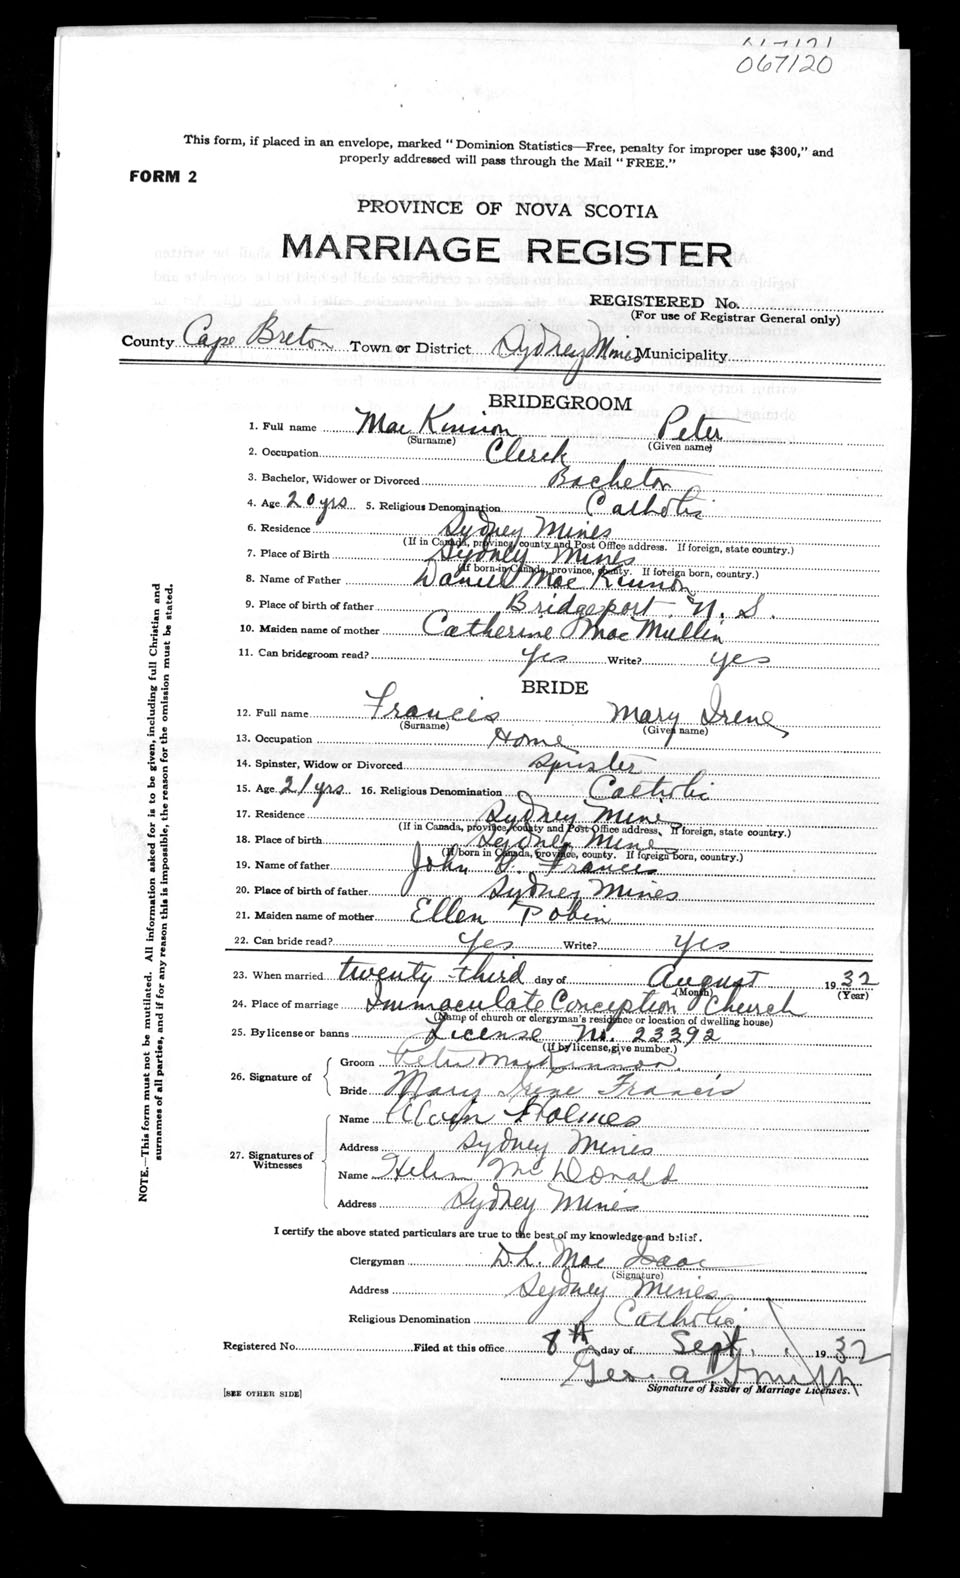 067120
This form, if placed in an envelope, marked "Dominion Statistics—Free, penalty for improper use $300," and
properly addressed will pass through the Mail "FREE."
FORM 2
PROVINCE OF NOVA SCOTIA
MARRIAGE REGISTER
REGISTERED No.
(For use of Registrar General only)
County Cape Breton Town or District Sydney Mines Municipality
BRIDEGROOM
1. Full name MacKinnon Peter
(Surname) (Given name)
2. Occupation Clerk
3. Bachelor, Widower or Divorced Bachelor
4. Age 20 yrs 5. Religious Denomination Catholic
6. Residence Sydney Mines
(If in Canada, province, county and Post Office address. If foreign, state country.)
7. Place of Birth Sydney Mines
(If born in Canada, province, county. If foreign born, country.)
8. Name of Father Daniel MacKinnon
9. Place of birth of father Bridgeport N. S.
10. Maiden name of mother Catherine MacMullin
11. Can bridegroom read? Yes Write? yes
BRIDE
12. Full name Francis Mary Irene
(Surname) (Given name)
13. Occupation Home
14. Spinster, Widow or Divorced Spinster
15. Age 21 yrs 16. Religious Denomination Catholic
17. Residence Sydney Mines
(If in Canada, province, county and Post Office address. If foreign, state country.)
18. Place of birth Sydney Mines
(If born in Canada, province, county. If foreign born, country.)
19. Name of father John Francis
20. Place of birth of father Sydney Mines
21. Maiden name of mother Ellen Tobin
22. Can bride read? Yes Write? Yes
23. When married twenty-third day of August 1932
(Month) (Year)
24. Place of marriage Immaculate Conception Church
(Name of church or clergyman's residence or location of dwelling house)
25. By license or banns License No. 23392
(If by license, give number.)
26. Signature of
Groom Peter MacKinnon
Bride Mary Irene Francis
27. Signatures of Witnesses
Name Holmes
Address Sydney Mines
Name Helen McDonald
Address Sydney Mines
I certify the above stated particulars are true to the best of my knowledge and belief.
Clergyman D. L. MacIsaac
(Signature)
Address Sydney Mines
Religious Denomination Catholic
Registered No. Filed at this office 8th day of Sept. 1932
Geo. A. Smith
Signature of Issuer of Marriage Licenses.
[SEE OTHER SIDE]
NOTE.—This form must not be mutilated. All information asked for is to be given, including full Christian and
surnames of all parties, and if for any reason this is impossible, the reason for the omission must be stated.